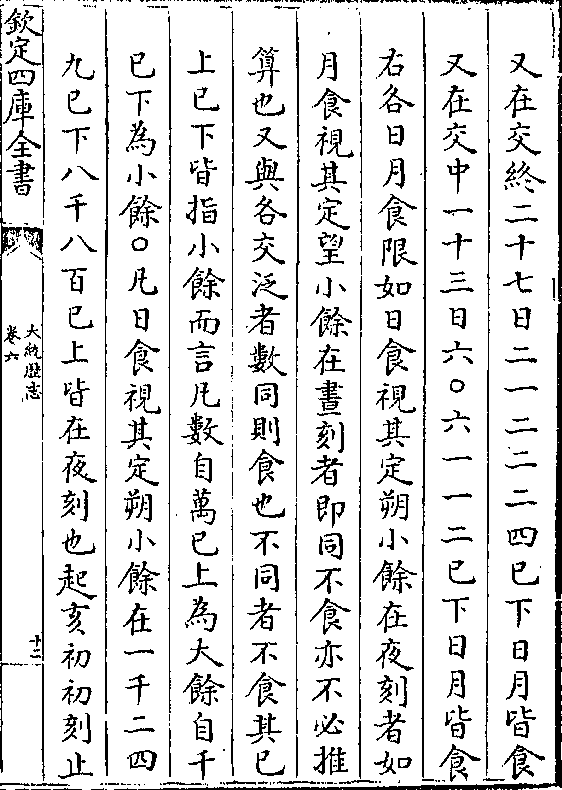 又在交終二十七日二一二二二四已下日月皆食
又在交中一十三日六〇六一一二已下日月皆食
右各日月食限如日食視其定朔小餘在夜刻者如
月食視其定望小餘在晝刻者即同不食亦不必推
算也又與各交泛者數同則食也不同者不食其已
上已下皆指小餘而言凡數自萬已上為大餘自千
已下為小餘〇凡日食視其定朔小餘在一千二四
九已下八千八百已上皆在夜刻也起亥初初刻止
欽定四庫全書
大統歷志
卷六
十二